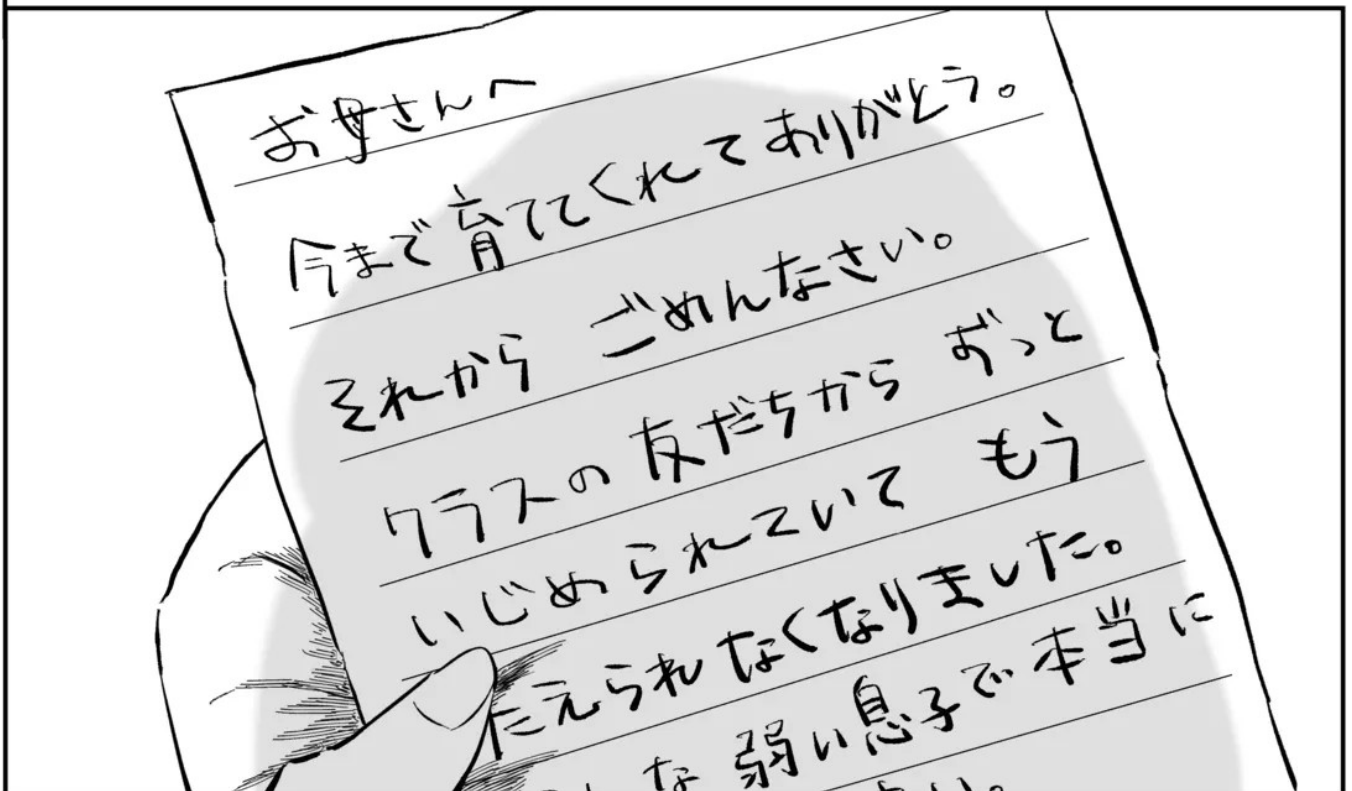 お母さんへ
今まで育ててくれてありがとう。
それから ごめんなさい。
クラスの友だちから ずっと
いじめられていて もう
たえられなくなりました。
な 弱い息子で本当に
い。